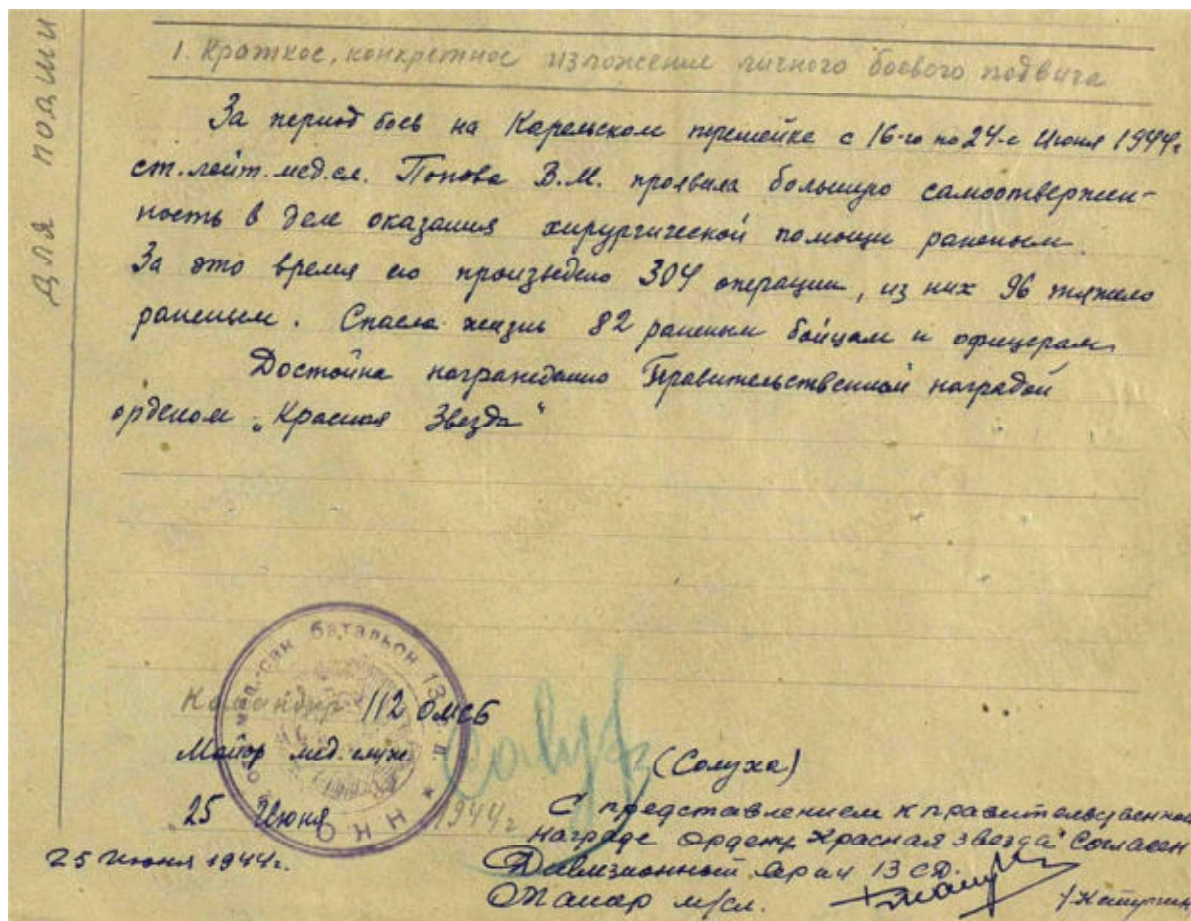 для подши
1. Краткое, конкретное изложение личного боевого подвига
За период боев на Карельском перешейке с 16-го по 24-е Июня 1944г
ст. лейт. мед. сл. Попова В.М. проявила большую самоотвержен-
ность в деле оказания хирургической помощи раненым.
За это время ею произведено 304 операции, из них 96 тяжело
раненым. Спасла жизнь 82 раненым бойцам и офицерам
Достойна награждению Правительственной наградой
орденом „Красная Звезда“
мед.-сан батальон 13
Н К О
Командир 112 ОМСБ
Майор мед. служ. (Солуха)
25 Июня 1944г
С представлением к правительственной
награде ордену "Красная звезда" Согласен
25 июня 1944г. Дивизионный врач 13 СД.
Майор м/сл.